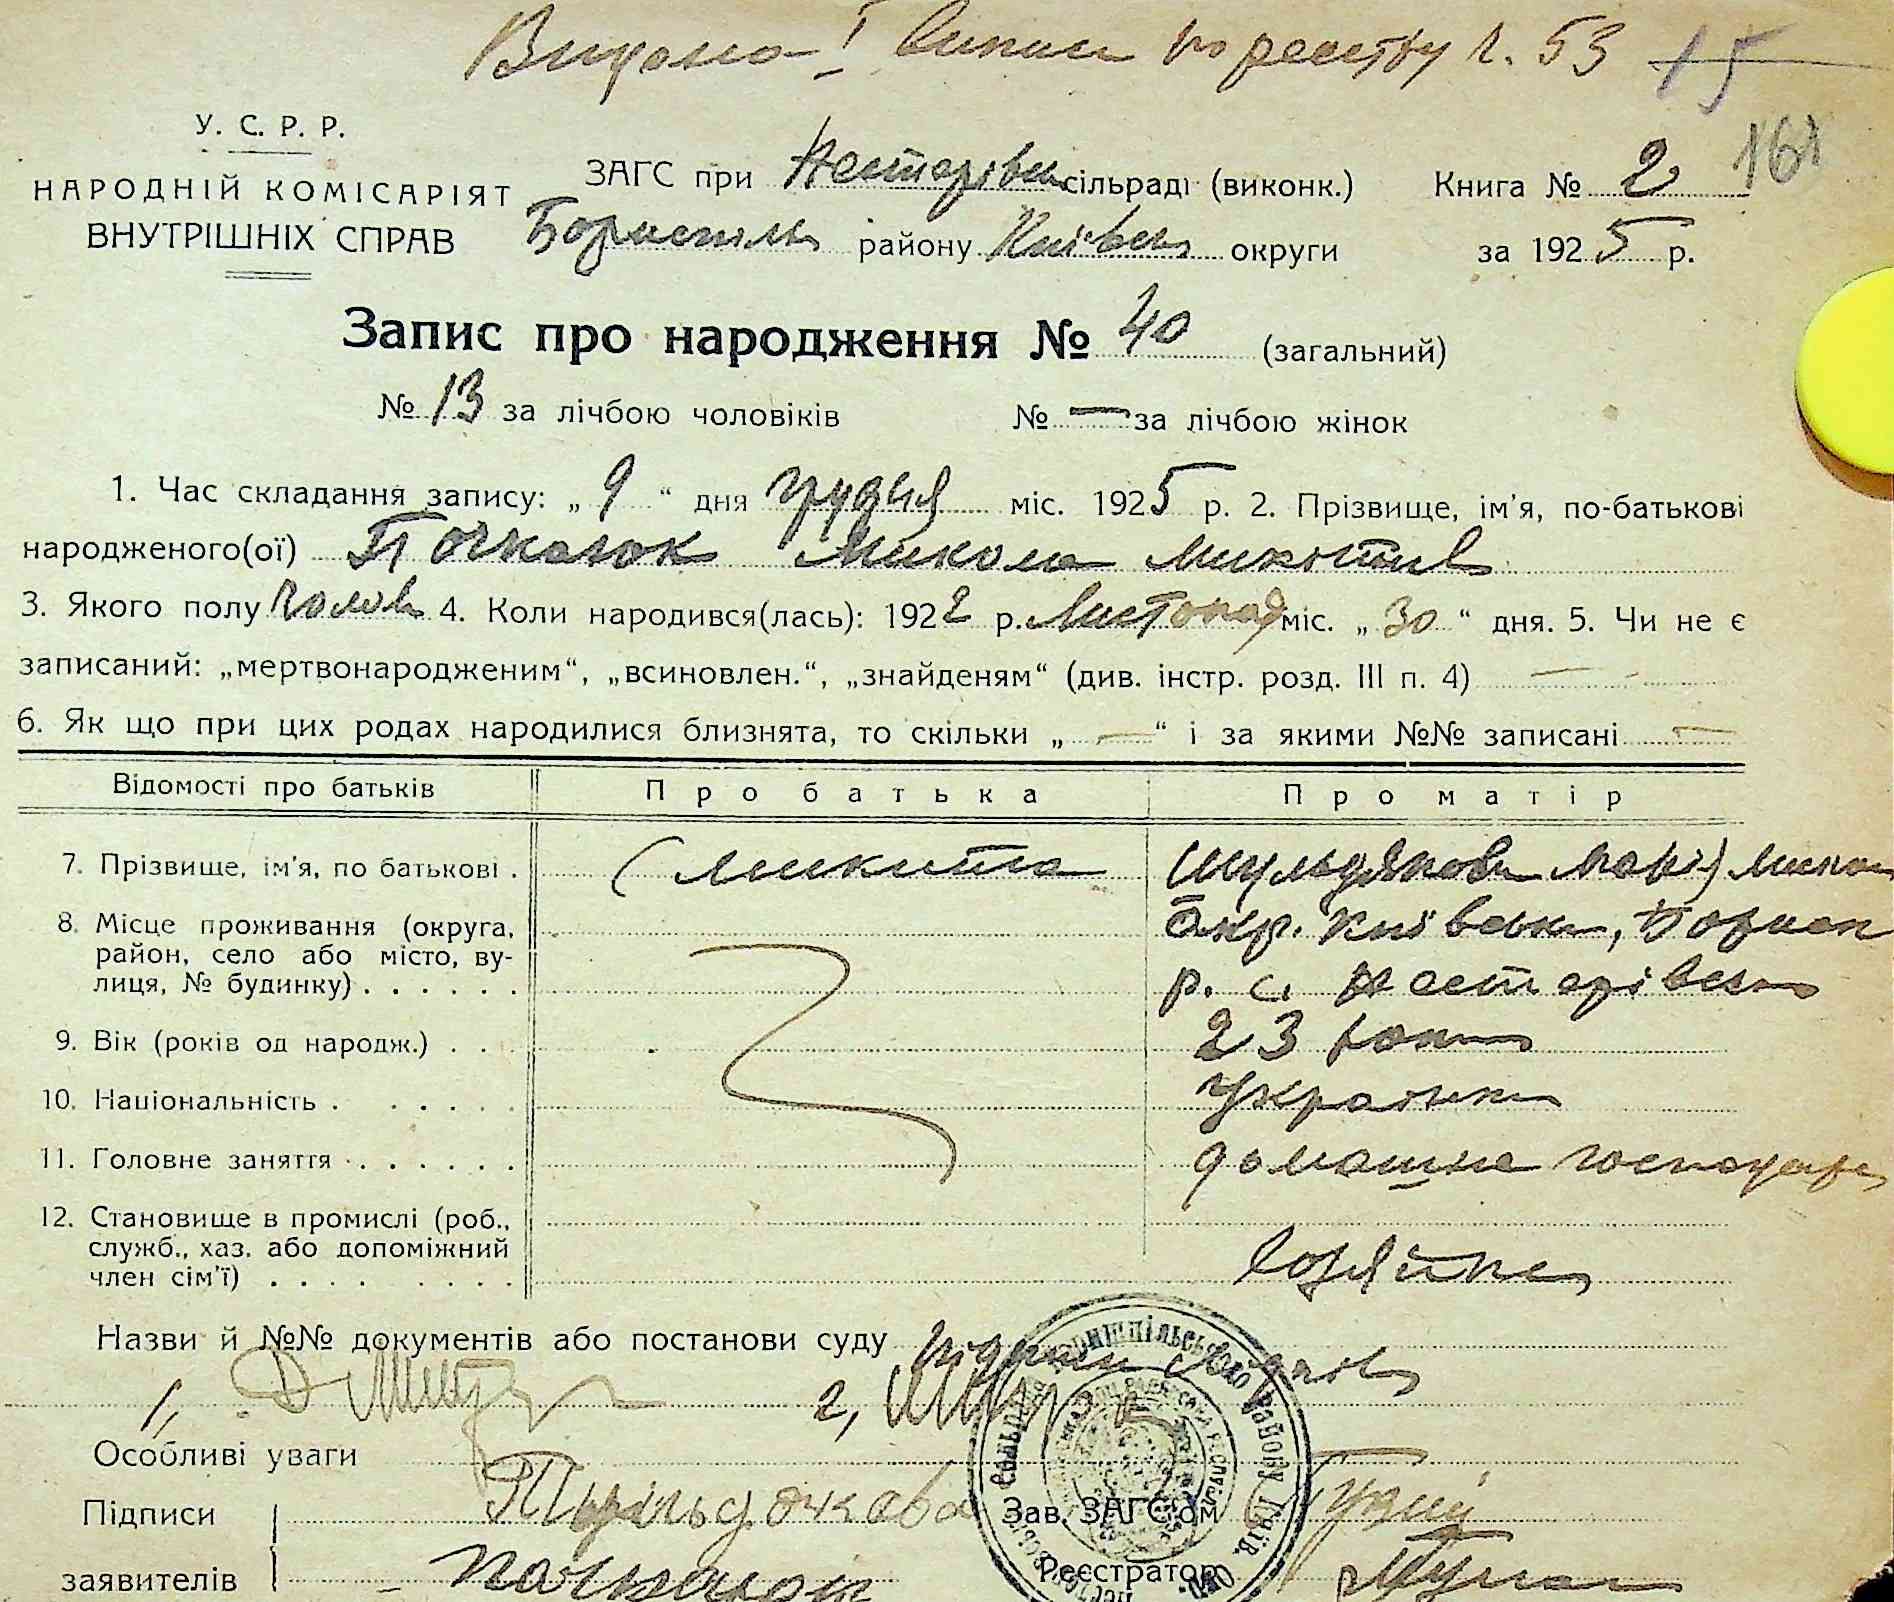 Видана І випис по реєстру ч. 53 15
У. С. Р. Р.
НАРОДНІЙ КОМІСАРІЯТ
ВНУТРІШНІХ СПРАВ
ЗАГС при Нестерівськ сільраді (виконк.)
Бориспільск району Київськ округи
Книга № 2 161
за 1925 р.
Запис про народження № 40 (загальний)
№ 13 за лічбою чоловіків № — за лічбою жінок
1. Час складання запису: „ 9 “ дня грудня міс. 1925 р. 2. Прізвище, ім'я, по-батькові
народженого(ої) Почкалок Микола Микитів
3. Якого полу Чолов 4. Коли народився(лась): 1922 р. Листопад міс. „ 30 “ дня. 5. Чи не є
записаний: „мертвонародженим“, „всиновлен.“, „знайденям“ (див. інстр. розд. III п. 4) —
6. Як що при цих родах народилися близнята, то скільки „ — “ і за якими №№ записані —
Відомості про батьків Про батька Про матір
7. Прізвище, ім'я, по батькові . ( Микита Марія
8. Місце проживання (округа, район, село або місто, вулиця, № будинку) . . . . . . Окр. Київськ, Борисп
р. с. Нестерівка
9. Вік (років од народж.) . . . 23 роки
10. Національність . . . . . . Українка
11. Головне заняття . . . . . . домашнє господар
12. Становище в промислі (роб., служб., хаз. або допоміжний член сім'ї) . . . . . . . . Хозяйка
Назви й №№ документів або постанови суду
1, 2,
Особливі уваги
Підписи
заявителів
Зав. ЗАГС'ом
Реєстратор
Бришпільського Району Київ. Окр.